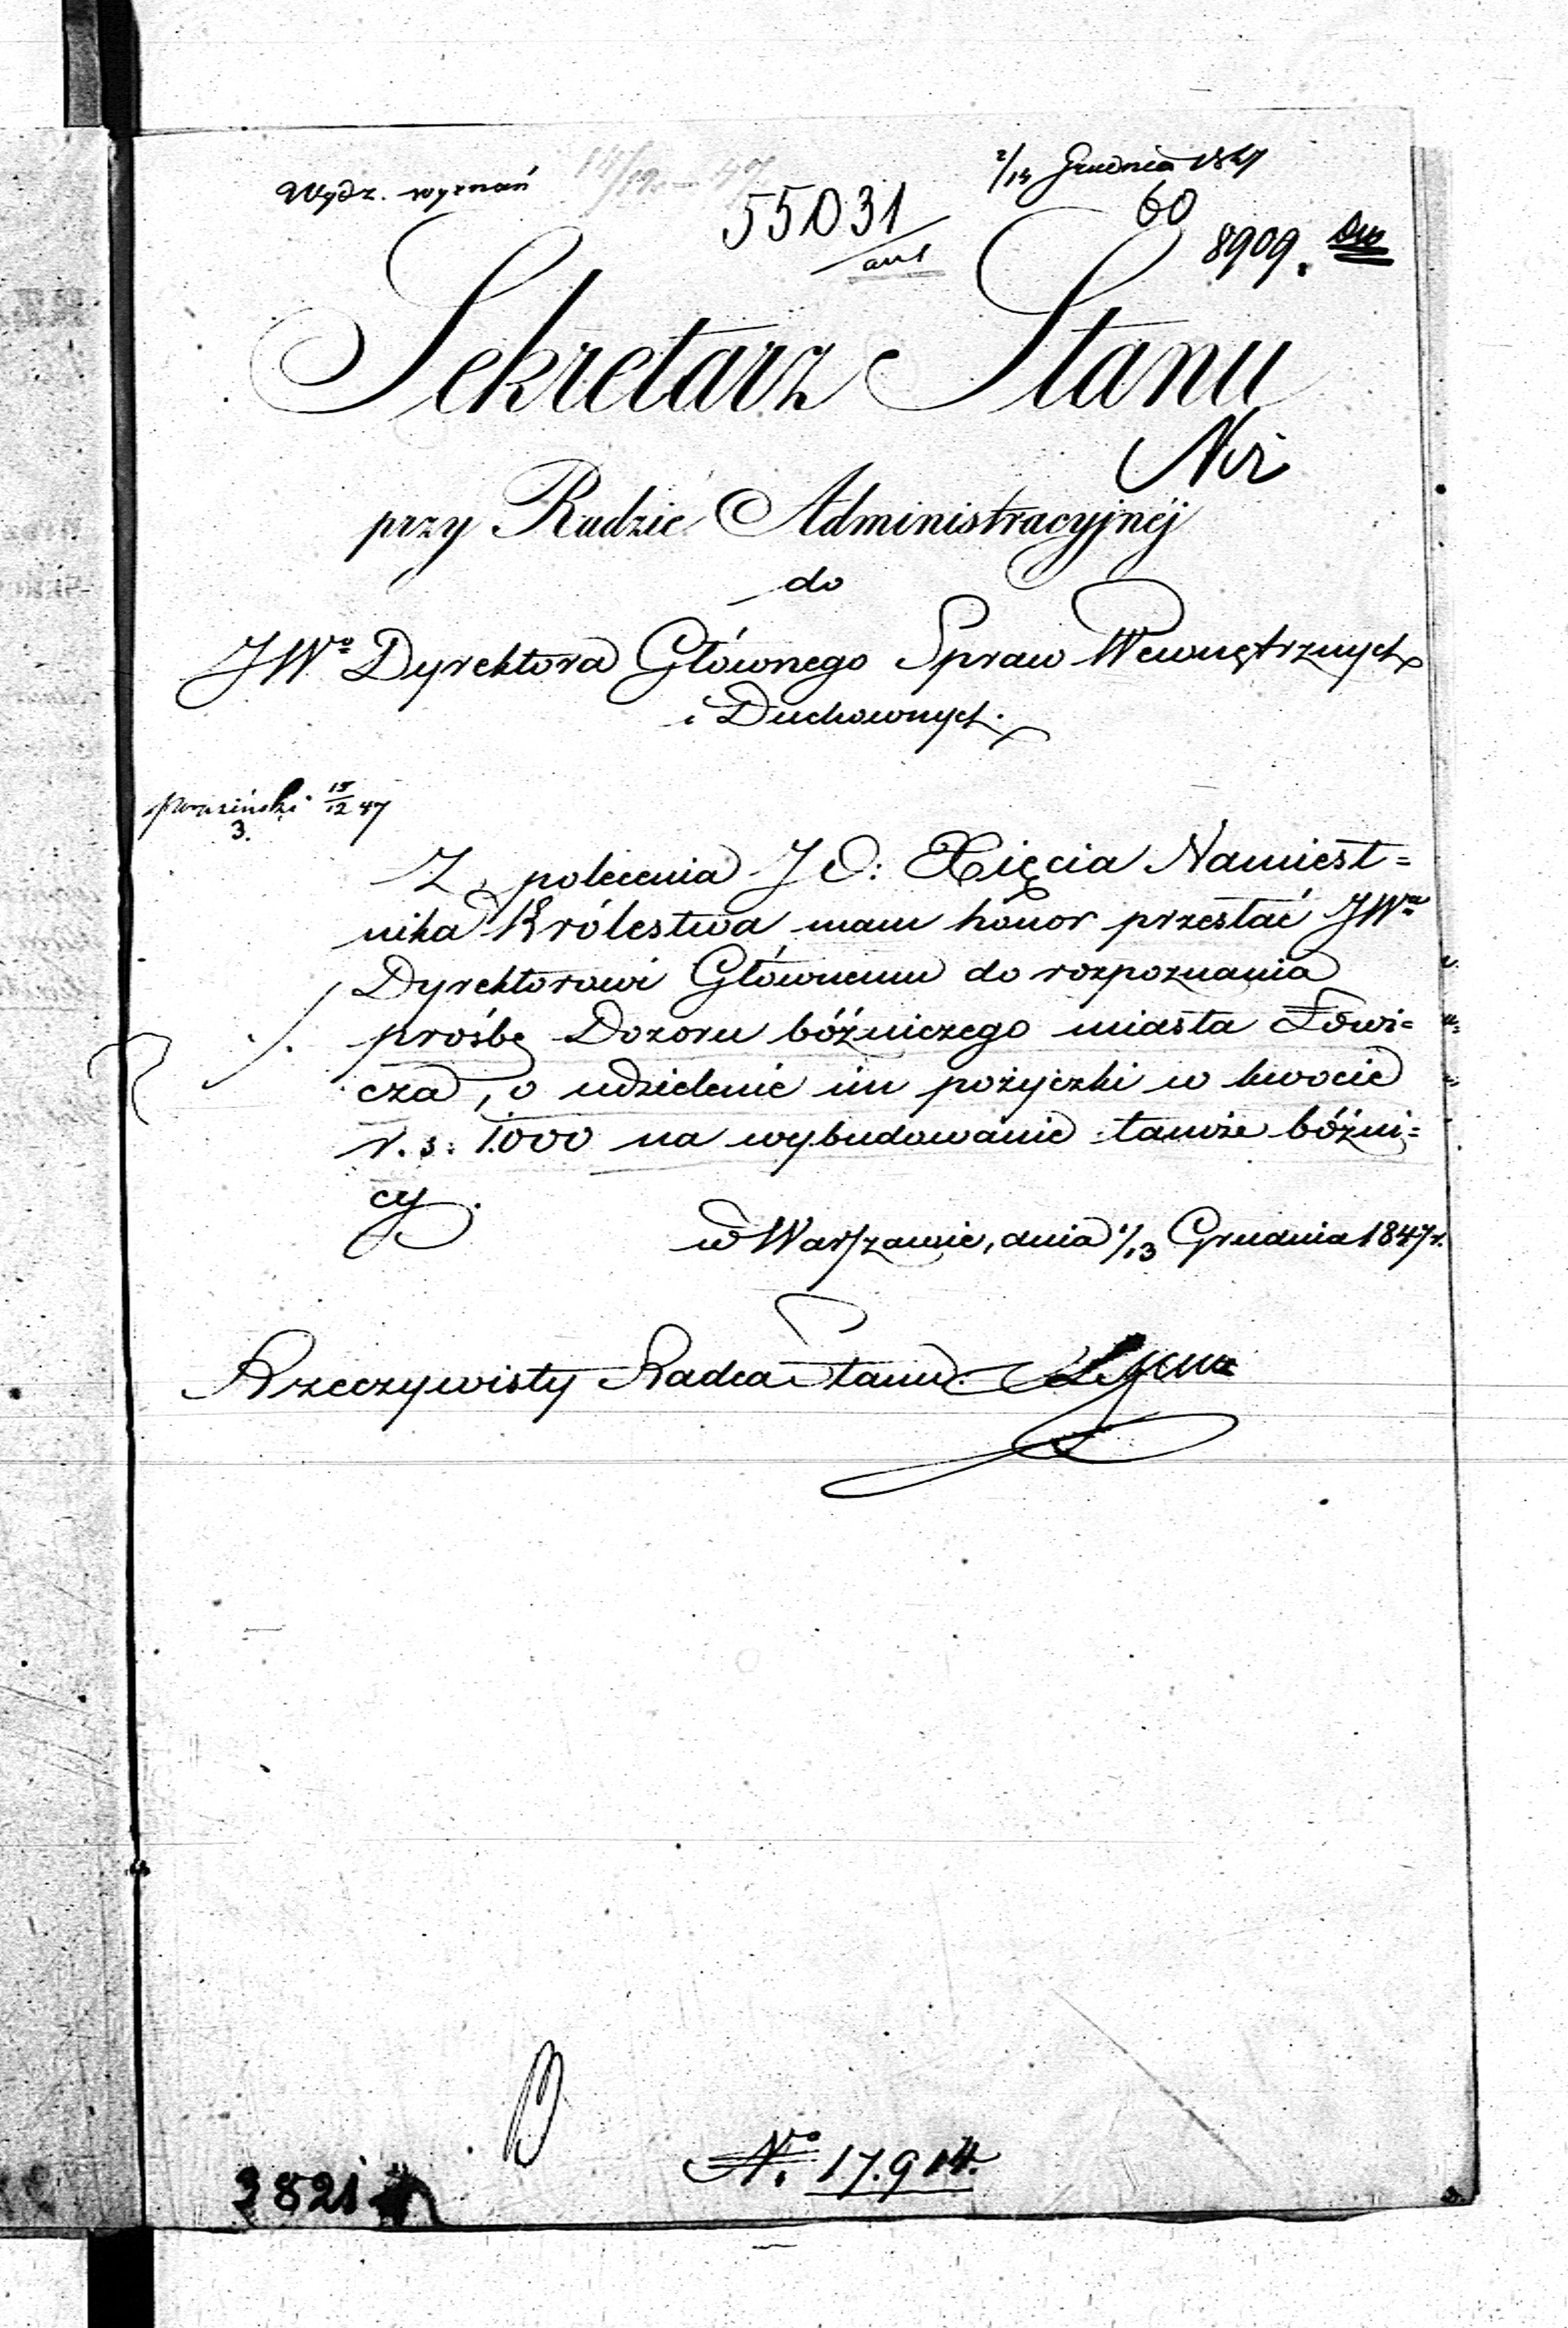 Wydz. wyznań
2/14 Grudnia 1847
55031
60
8909.
Sekretarz Stanu
przy Radzie Administracyjnéj
do
JWº Dyrektora Głównego Spraw Wewnętrznych
i Duchownych.
15/12 47
3.
Z polecenia JO: Xięcia Namiest=
nika Królestwa mam honor przesłać JWu
Dyrektorowi Głównemu do rozpoznania
prośbę Dozoru bóźniczego miasta Łowi=
cza, o udzielenie im pożyczki w kwocie
r. s. 1.000 na wybudowanie tamże bóźni=
cy.
w Warszawie, dnia 1/13 Grudnia 1847 r.
Rzeczywisty Radca Stanu
Nº 17.914.
3821